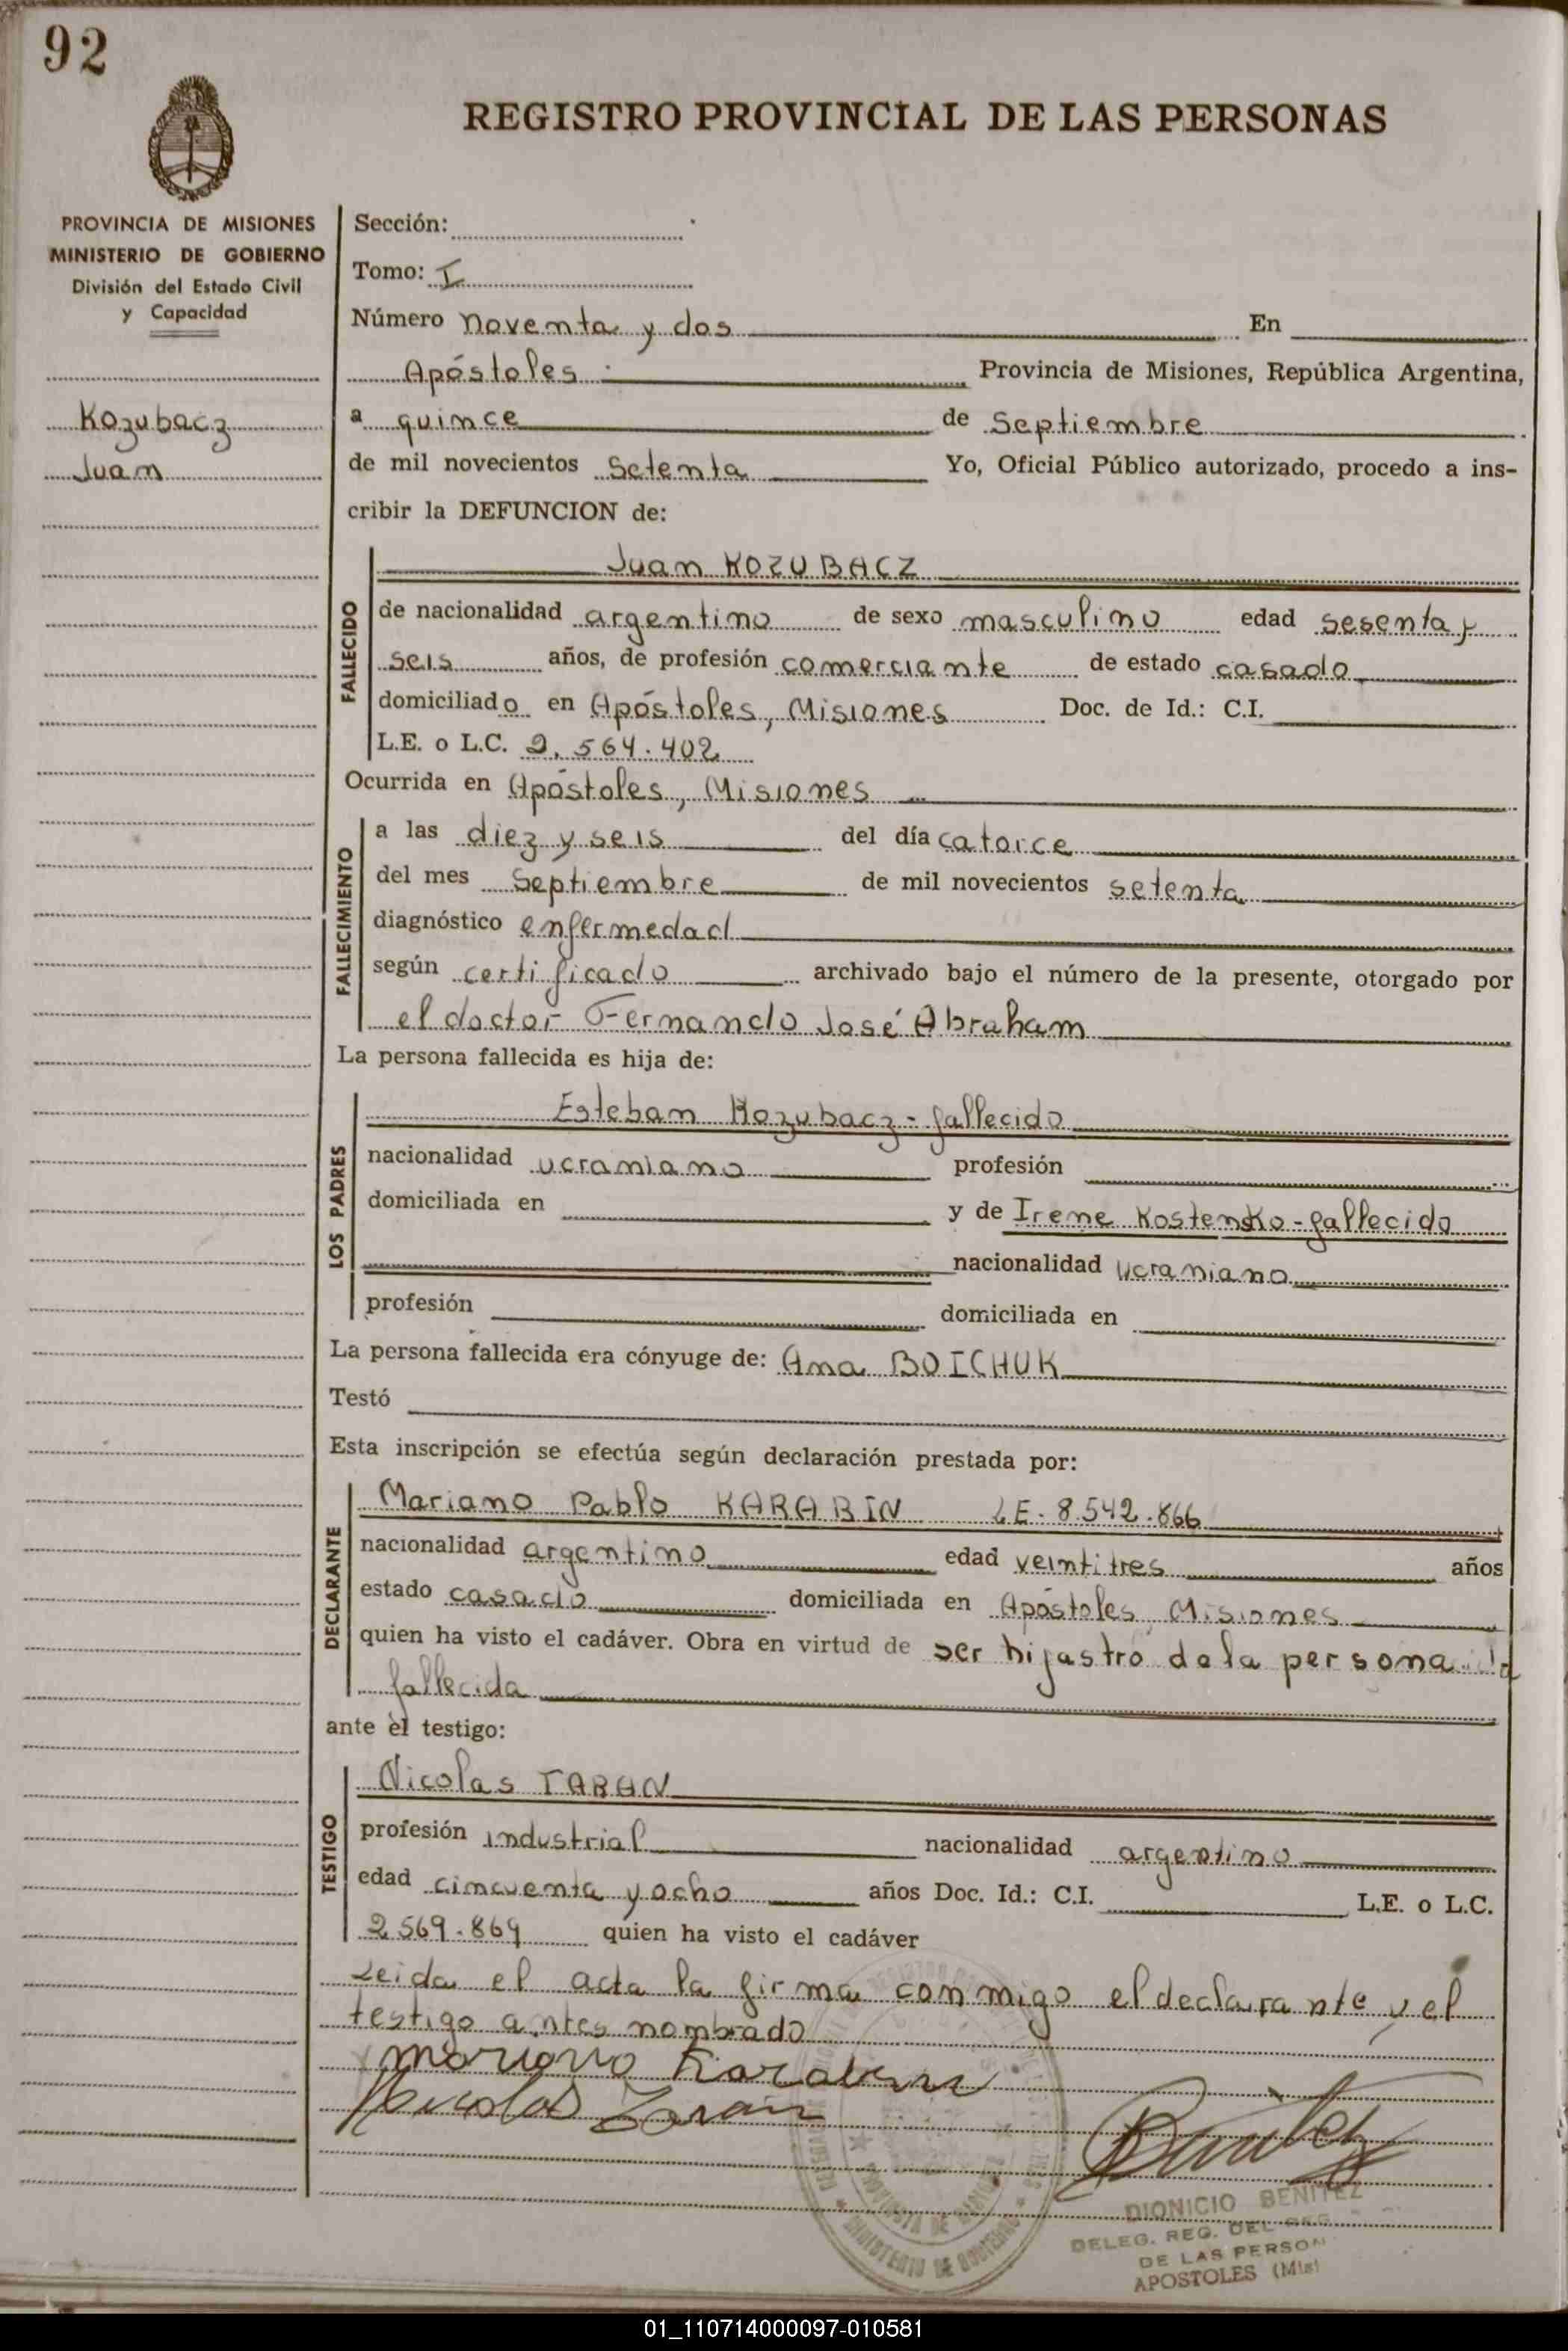 92
REGISTRO PROVINCIAL DE LAS PERSONAS
PROVINCIA DE MISIONES
MINISTERIO DE GOBIERNO
División del Estado Civil
y Capacidad
Kozubacz
Juan
Sección:
Tomo: I
Número noventa y dos En
Apóstoles Provincia de Misiones, República Argentina,
a quince de septiembre
de mil novecientos setenta Yo, Oficial Público autorizado, procedo a ins-
cribir la DEFUNCION de:
FALLECIDO
Juan KOZUBACZ
de nacionalidad argentino de sexo masculino edad sesenta y
seis años, de profesión comerciante de estado casado
domiciliado en Apóstoles, Misiones Doc. de Id.: C.I.
L.E. o L.C. 2.564.402
Ocurrida en Apóstoles, Misiones
FALLECIMIENTO
a las diez y seis del día catorce
del mes septiembre de mil novecientos setenta
diagnóstico enfermedad
según certificado archivado bajo el número de la presente, otorgado por
el doctor Fernando José Abraham
La persona fallecida es hija de:
LOS PADRES
Esteban Kozubacz - fallecido
nacionalidad ucraniano profesión
domiciliada en y de Irene Kostensko - fallecido
nacionalidad ucraniano
profesión domiciliada en
La persona fallecida era cónyuge de: Ana BOICHUK
Testó
Esta inscripción se efectúa según declaración prestada por:
DECLARANTE
Mariano Pablo KARABIN LE. 8.542.866
nacionalidad argentino edad veintitres años
estado casado domiciliada en Apóstoles, Misiones
quien ha visto el cadáver. Obra en virtud de ser hijastro de la persona
fallecida
ante el testigo:
TESTIGO
Nicolas TARAN
profesión industrial nacionalidad argentino
edad cincuenta y ocho años Doc. Id.: C.I. L.E. o L.C.
2.569.869 quien ha visto el cadáver
Leida el acta la firma conmigo el declarante y el
testigo antes nombrado
Mariano Karabin
Nicolas Taran
Benitez
DIONICIO BENITEZ
DELEG. REG. DEL
DE LAS PERSON
APOSTOLES (Mis)
MINISTERIO DE GOBIERNO
01_110714000097-010581